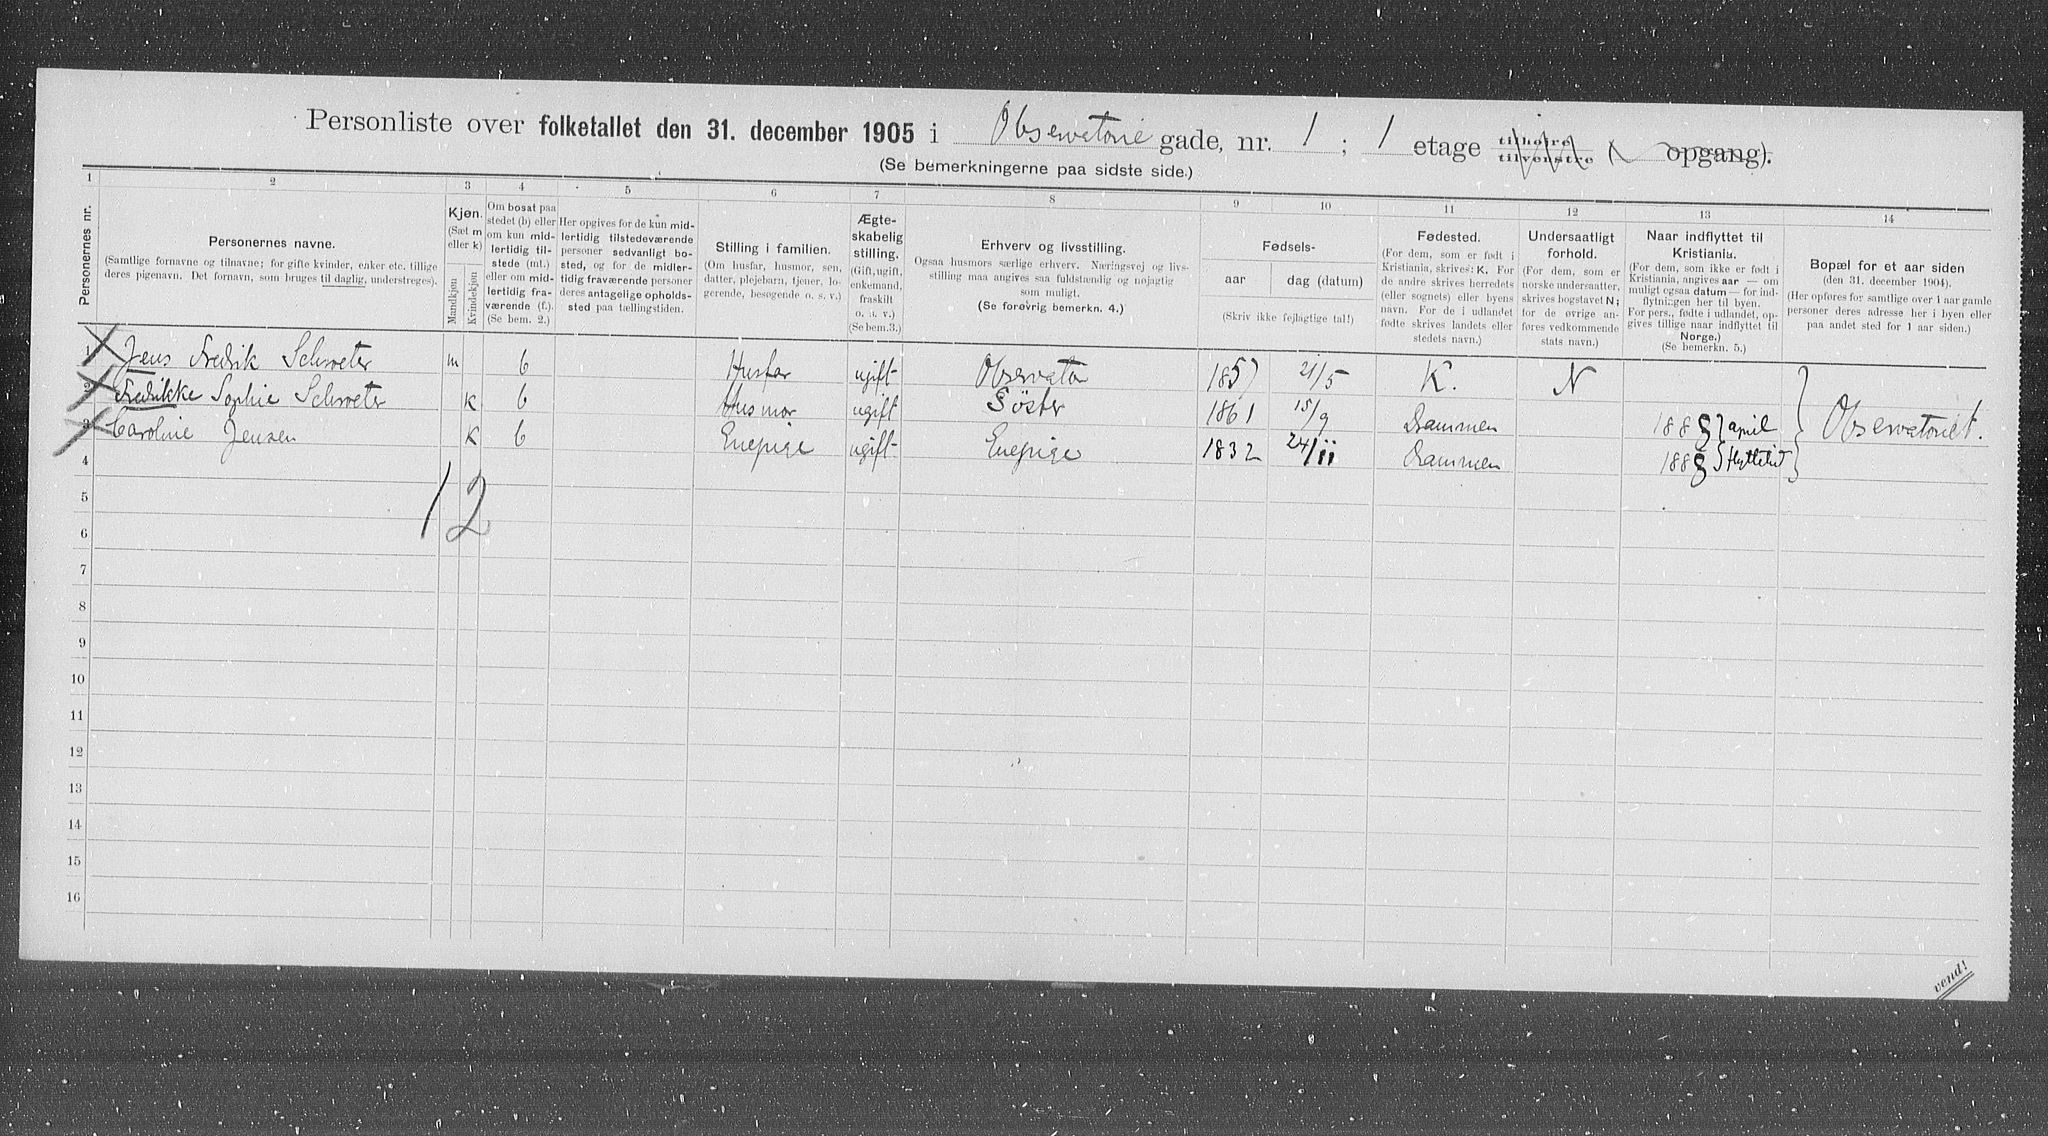 Personliste over folketallet den 31. december 1905 i Observatorie gade, nr. 1 ; 1 etage tilhøire tilvenstre ( opgang).
(Se bemerkningerne paa sidste side.)
1 2 3 4 5 6 7 8 9 10 11 12 13 14
Personernes nr.
Personernes navne.
(Samtlige fornavne og tilnavne; for gifte kvinder, enker etc. tillige
deres pigenavn. Det fornavn, som bruges til daglig, understreges).
Kjøn.
(Sæt m
eller k)
Mandkjøn
Kvindekjøn
Om bosat paa
stedet (b) eller
om kun mid-
lertidig til-
stede (mt.)
eller om mid-
lertidig fra-
værende (f.).
(Se bem. 2.)
Her opgives for de kun mid-
lertidig tilstedeværende
personer sedvanligt bo-
sted, og for de midler-
tidig fraværende personer
deres antagelige opholds-
sted paa tællingstiden.
Stilling i familien.
(Om husfar, husmor, søn,
datter, plejebarn, tjener, lo-
gerende, besøgende o. s. v.)
Ægte-
skabelig
stilling.
(Gift, ugift,
enkemand,
fraskilt
o. s. v.)
(Se bem. 3.)
Erhverv og livsstilling.
Ogsaa husmors særlige erhverv. Næringsvej og livs-
stilling maa angives saa fuldstændig og nøjagtig
som muligt.
(Se forøvrig bemerkn. 4.)
Fødsels-
aar
dag (datum)
(Skriv ikke fejlagtige tal!)
Fødested.
(For dem, som er født i
Kristiania, skrives: K. For
de andre skrives herredets
(eller sognets) eller byens
navn. For de i udlandet
fødte skrives landets eller
stedets navn.)
Undersaatligt
forhold.
(For dem, som er
norske undersaatter,
skrives bogstavet N;
for de øvrige an-
føres vedkommende
stats navn.)
Naar indflyttet til
Kristiania.
(For dem, som ikke er født i
Kristiania, angives aar — om
muligt ogsaa datum — for ind-
flytningen her til byen.
For pers., fødte i udlandet, op-
gives tillige naar indflyttet til
Norge.)
(Se bemerkn. 5.)
Bopæl for et aar siden
(den 31. december 1904).
(Her opføres for samtlige over 1 aar gamle
personer deres adresse her i byen eller
paa andet sted for 1 aar siden.)
1 Jens Fredrik Schroeter m b Husfar ugift Observator 1857 21/5 K. N
2 Fredrikke Sophie Schroeter k b Husmor ugift Søster 1861 15/9 Drammen 1888 april Observatoriet.
3 Caroline Jensen k b Enepige ugift Enepige 1832 24/11 Drammen 1888
4
12
5
6
7
8
9
10
11
12
13
14
15
16
vend!